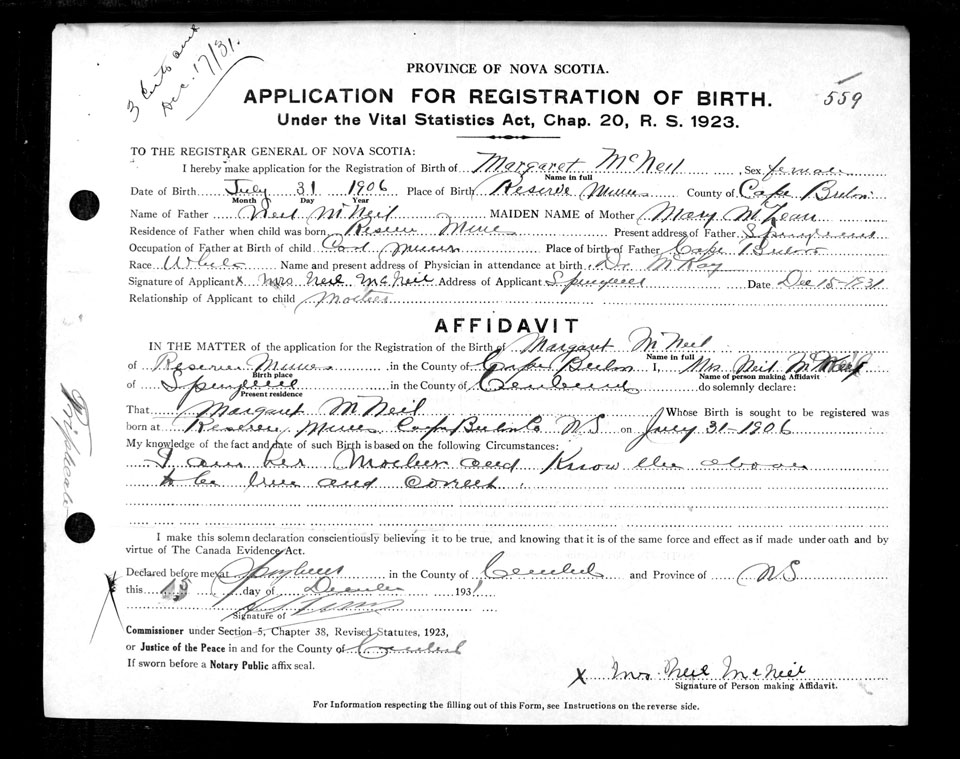 3 Certs and
Dec. 17/31.
PROVINCE OF NOVA SCOTIA.
559
APPLICATION FOR REGISTRATION OF BIRTH.
Under the Vital Statistics Act, Chap. 20, R. S. 1923.
TO THE REGISTRAR GENERAL OF NOVA SCOTIA:
I hereby make application for the Registration of Birth of Margaret McNeil Sex female
Name in full
Date of Birth July 31 1906 Place of Birth Reserve Mines County of Cape Breton
Month Day Year
Name of Father Neil McNeil MAIDEN NAME of Mother Mary McLean
Residence of Father when child was born Reserve Mines Present address of Father Springhill
Occupation of Father at Birth of child Coal Miner Place of birth of Father Cape Breton
Race White Name and present address of Physician in attendance at birth Dr McKay
Signature of Applicant x Mrs Neil McNeil Address of Applicant Springhill Date Dec 15-1931
Relationship of Applicant to child Mother
AFFIDAVIT
IN THE MATTER of the application for the Registration of the Birth of Margaret McNeil
Name in full
of Reserve Mines in the County of Cape Breton I, Mrs. Neil McNeil
Birth place Name of person making Affidavit
of Springhill in the County of Cumberland do solemnly declare:
Present residence
That Margaret McNeil Whose Birth is sought to be registered was
born at Reserve Mines Cape Breton Co NS on July 31-1906
My knowledge of the fact and date of such Birth is based on the following Circumstances:
I am her Mother and Know the above
to be true and correct.
Triplicate
I make this solemn declaration conscientiously believing it to be true, and knowing that is of the same force and effect as if made under oath and by
virtue of The Canada Evidence Act.
Declared before me at Springhill in the County of Cumberland and Province of NS
this 15 day of December 1931
Signature of
Commissioner under Section 5, Chapter 38, Revised Statutes, 1923,
or Justice of the Peace in and for the County of Cumberland
If sworn before a Notary Public affix seal.
x Mrs Neil McNeil
Signature of Person making Affidavit.
For Information respecting the filling out of this Form, see Instructions on the reverse side.